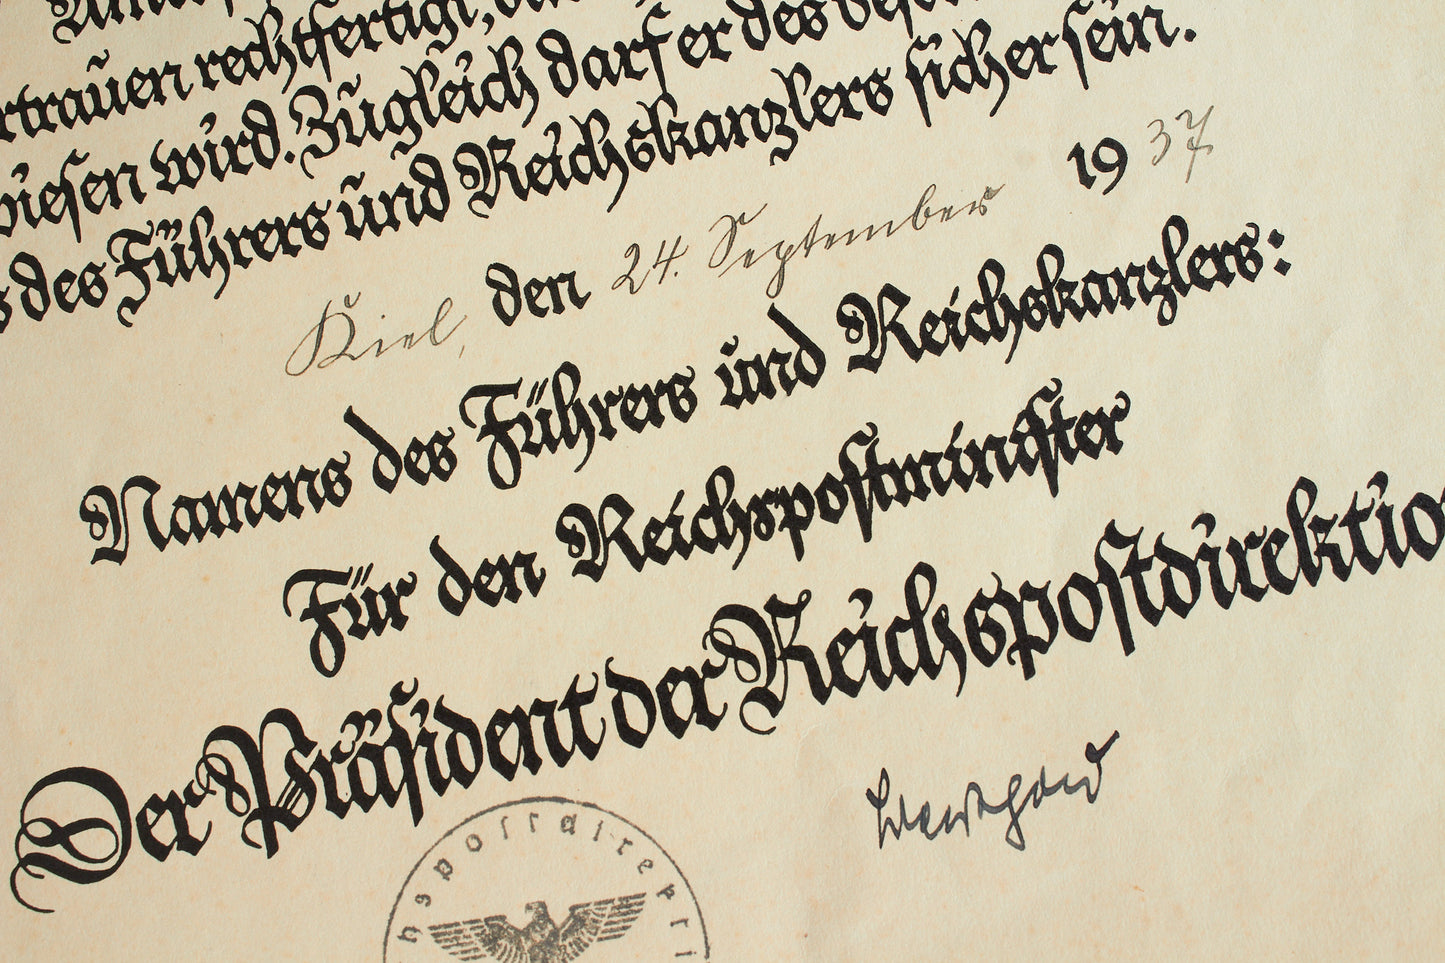 rtrauen rechtfertigt,
wiesen wird. Zugleich darf er des
des Führers und Reichskanzlers sicher sein.
Kiel, den 24. September 1937
Namens des Führers und Reichskanzlers:
Für den Reichspostminister
Der Präsident der Reichspostdirektio
hspostdirekti